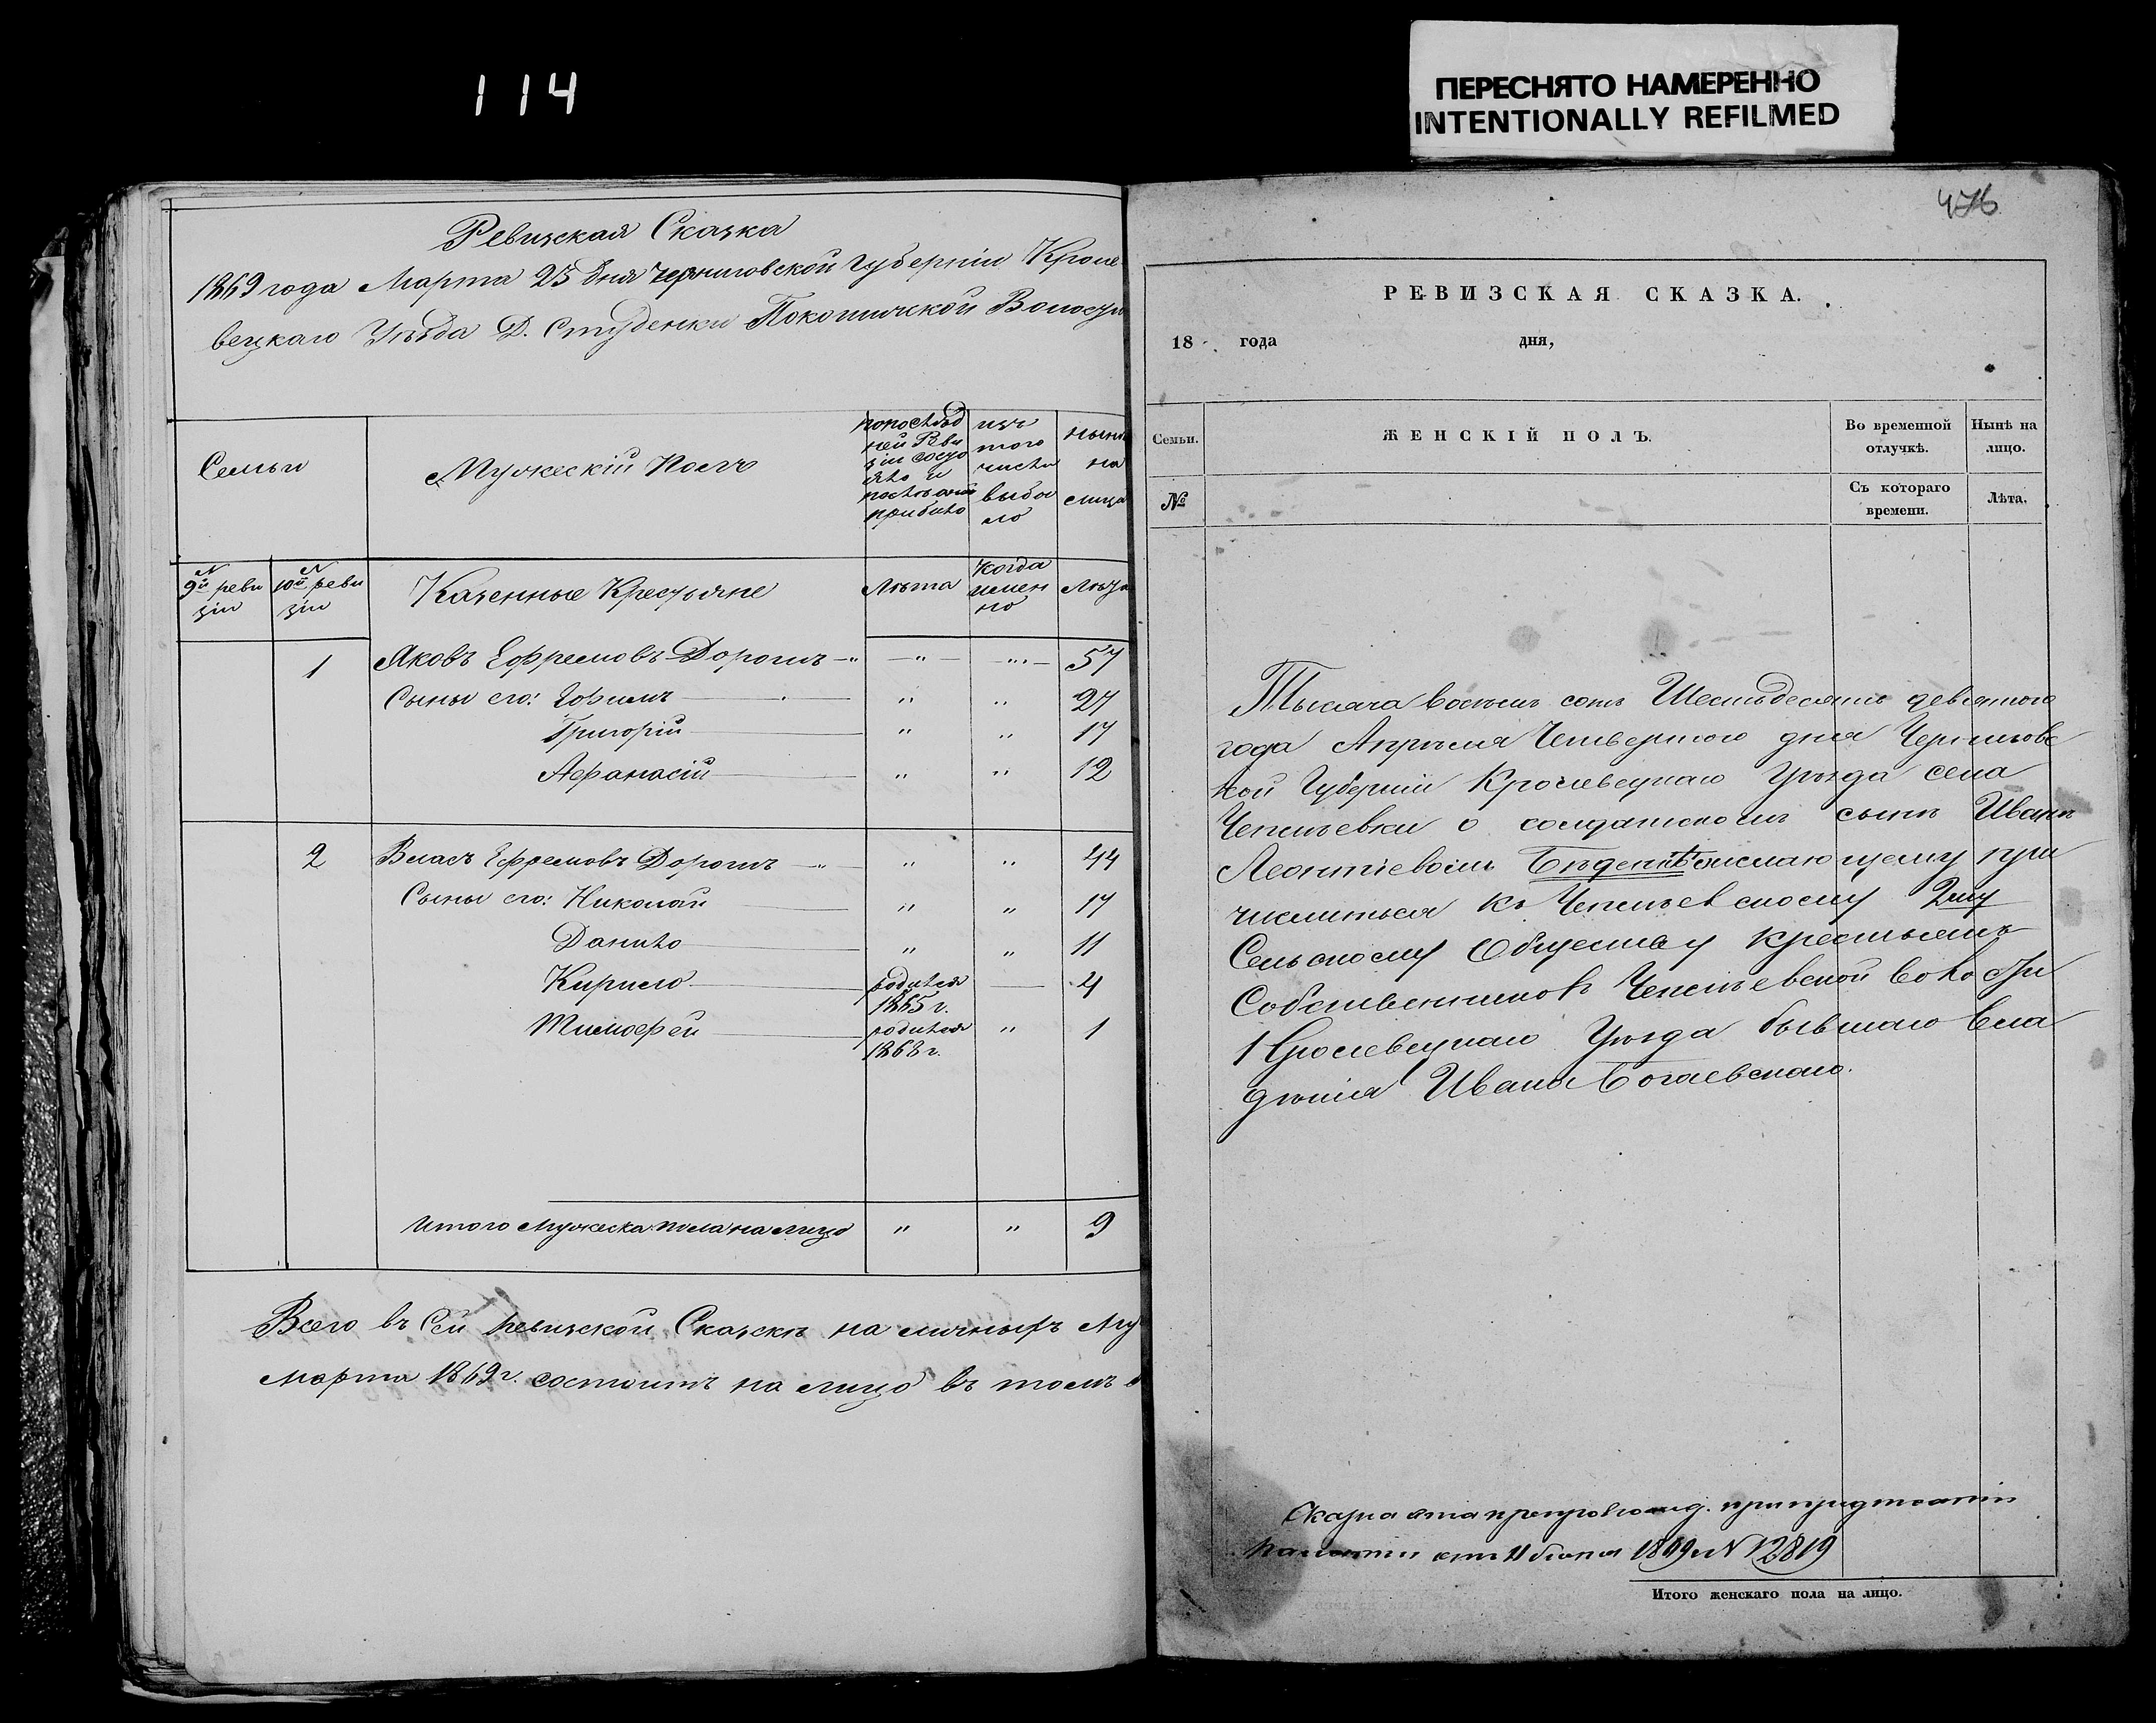 114
ПЕРЕСНЯТО НАМЕРЕННО
INTENTIONALLY REFILMED
Ревизская Сказка
1869 года Марта 25 дня Черниговской Губерніи Кроле
вецкаго Уѣзда Д. Студенки Покошичской Волости
Семьи
Мужескій Полъ
попослѣд
ней Реви
зіи состо
яло и
послѣ оной
прибыло
изъ
того
числа
выбы
ло
нынѣ
на
лицо
N
9й реви
зіи
N
10й реви
зіи
Казенные Крестьяне
Лѣта
когда
имен
но
Лѣта
1 Яковъ Ефремовъ Дорошъ " " 57
Сыны его: Ефимъ " " 27
Григорій " " 17
Афанасій " " 12
2 Власъ Ефремовъ Дорошъ " " 44
Сыны его: Николай " " 17
Данило " " 11
Кирило родился 1865 г. 4
Тимофей родился 1868 г. " 1
Итого мужеска пола на лицо " " 9
Всего въ сей ревизской Сказкѣ на личныхъ му
Марта 1869 г. состоитъ на лицо въ томъ
476
РЕВИЗСКАЯ СКАЗКА.
18 года дня,
Семьи.
ЖЕНСКІЙ ПОЛЪ.
Во временной
отлучкѣ.
Нынѣ на
лицо.
№
Съ котораго
времени.
Лѣта.
Тысяча восемь сотъ Шестьдесятъ девятого
года Апрѣля Четвертого дня Черниговс
кой Губерніи Кролевецкаго Уѣзда села
о солдатскомъ сынѣ Иванѣ
Леонтіевомъ желающему при
числиться къ 2му
Сельскому Обществу крестьянъ
Собственниковъ волости
Кролевецкаго Уѣзда бывшаго вла
дѣнія Ивана Богаевскаго.
Сказка эта препровожд. при предписаніи
Палаты отъ 11 1869 N 12819
Итого женскаго пола на лицо.